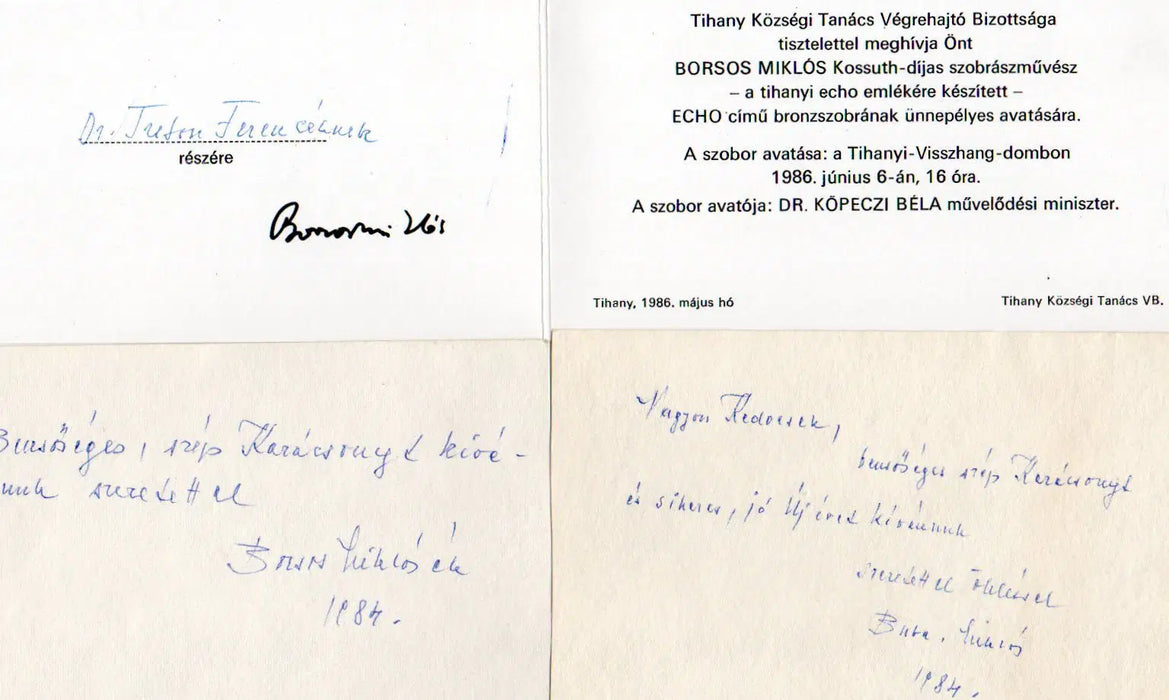 Dr. Treton Ferencéknek
részére
Borsos Miklós
Tihany Községi Tanács Végrehajtó Bizottsága
tisztelettel meghívja Önt
BORSOS MIKLÓS Kossuth-díjas szobrászművész
– a tihanyi echo emlékére készített –
ECHO című bronzszobrának ünnepélyes avatására.
A szobor avatása: a Tihanyi-Visszhang-dombon
1986. június 6-án, 16 óra.
A szobor avatója: DR. KÖPECZI BÉLA művelődési miniszter.
Tihany, 1986. május hó
Tihany Községi Tanács VB.
Bensőséges, szép Karácsonyt kívá-
nunk szeretettel
Borsos Miklósék
1984.
Nagyon Kedvesek,
bensőséges szép Karácsonyt
és sikeres, jó Új évet kívánunk
szeretettel öleléssel
Buba, Miklós
1984.